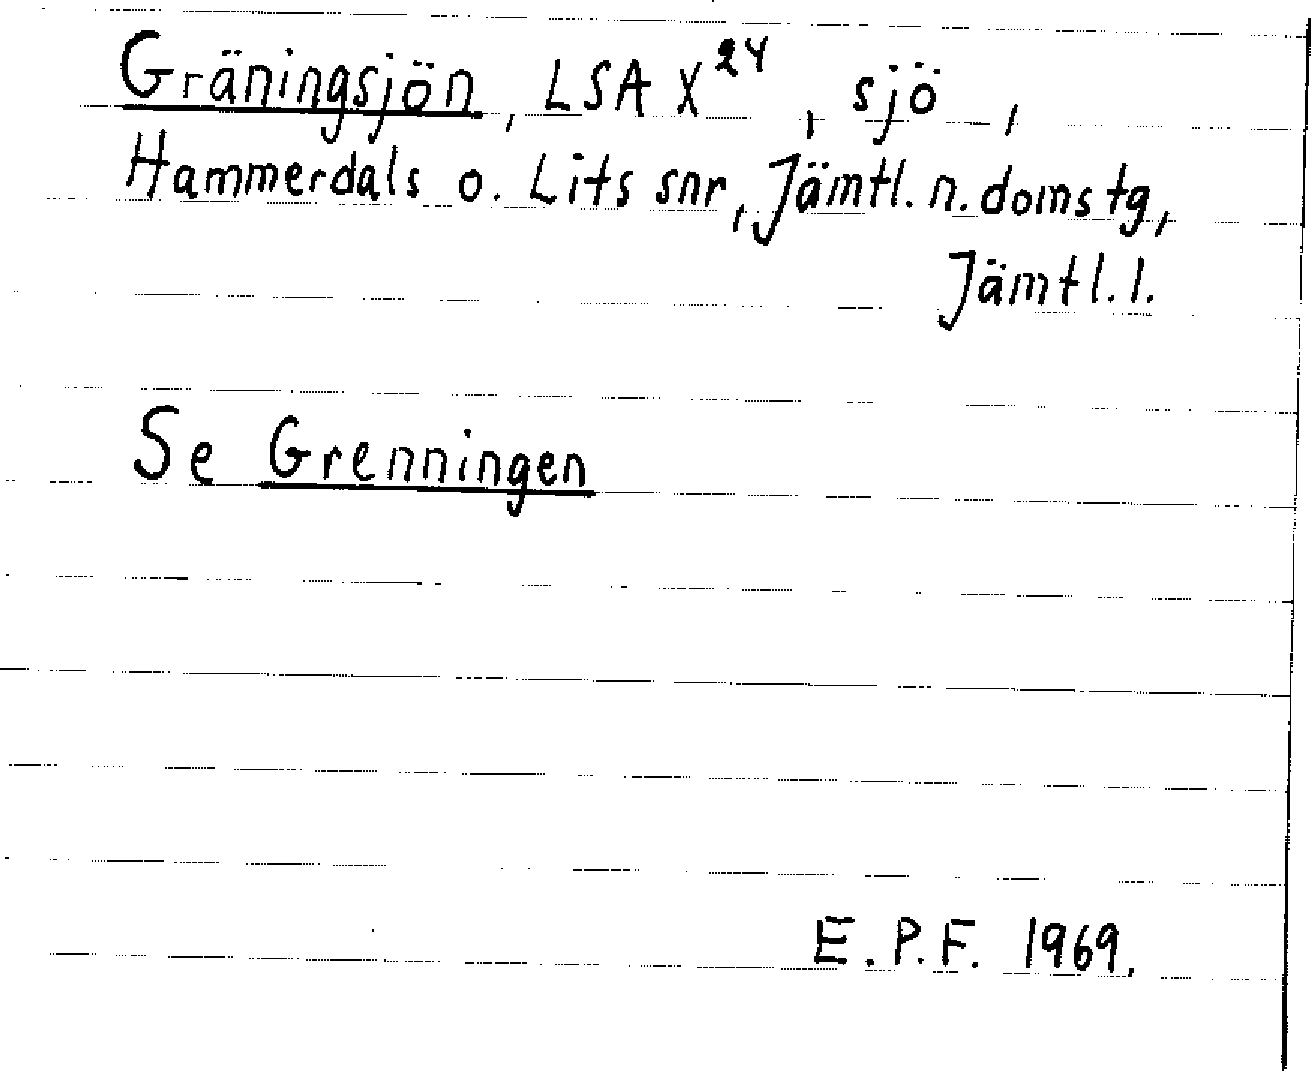 Gräningsjön, LSA X24, sjö,
Hammerdals o. Lits snr, Jämtl. n. domstg,
Jämtl. l.
Se Grenningen
E.P.F. 1969.